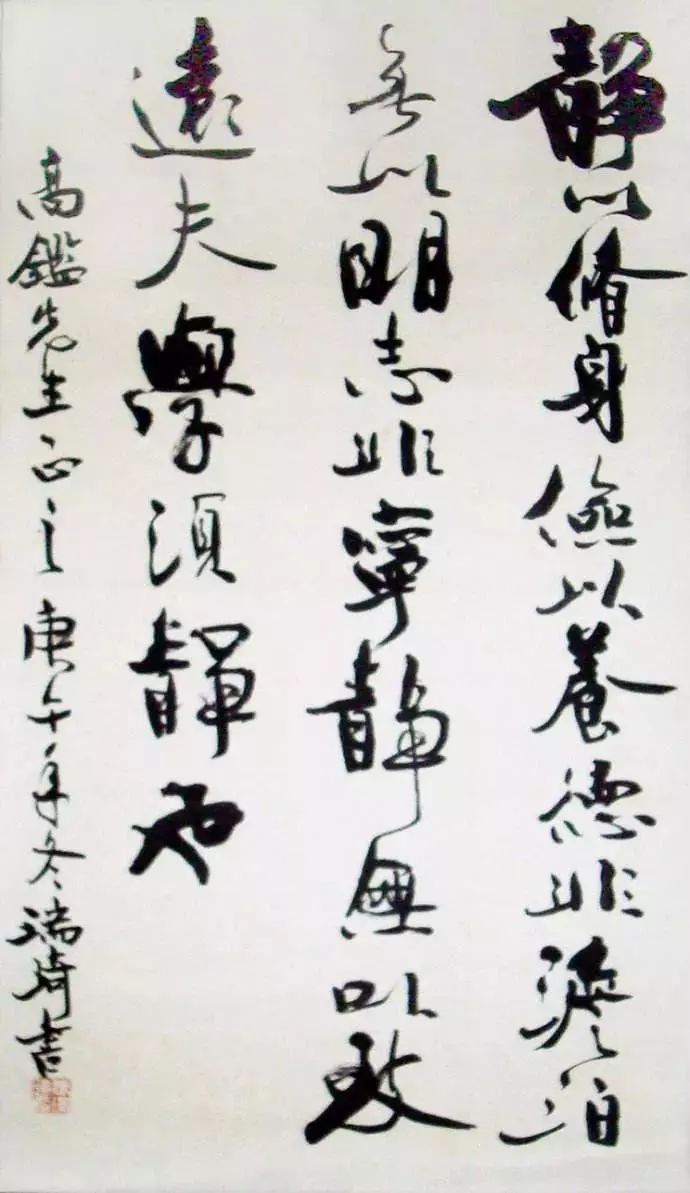 靜以脩身儉以養德非澹泊
無以明志非寧靜無以致
遠夫學須靜也
高鑑先生正之庚午年冬瑞琦書